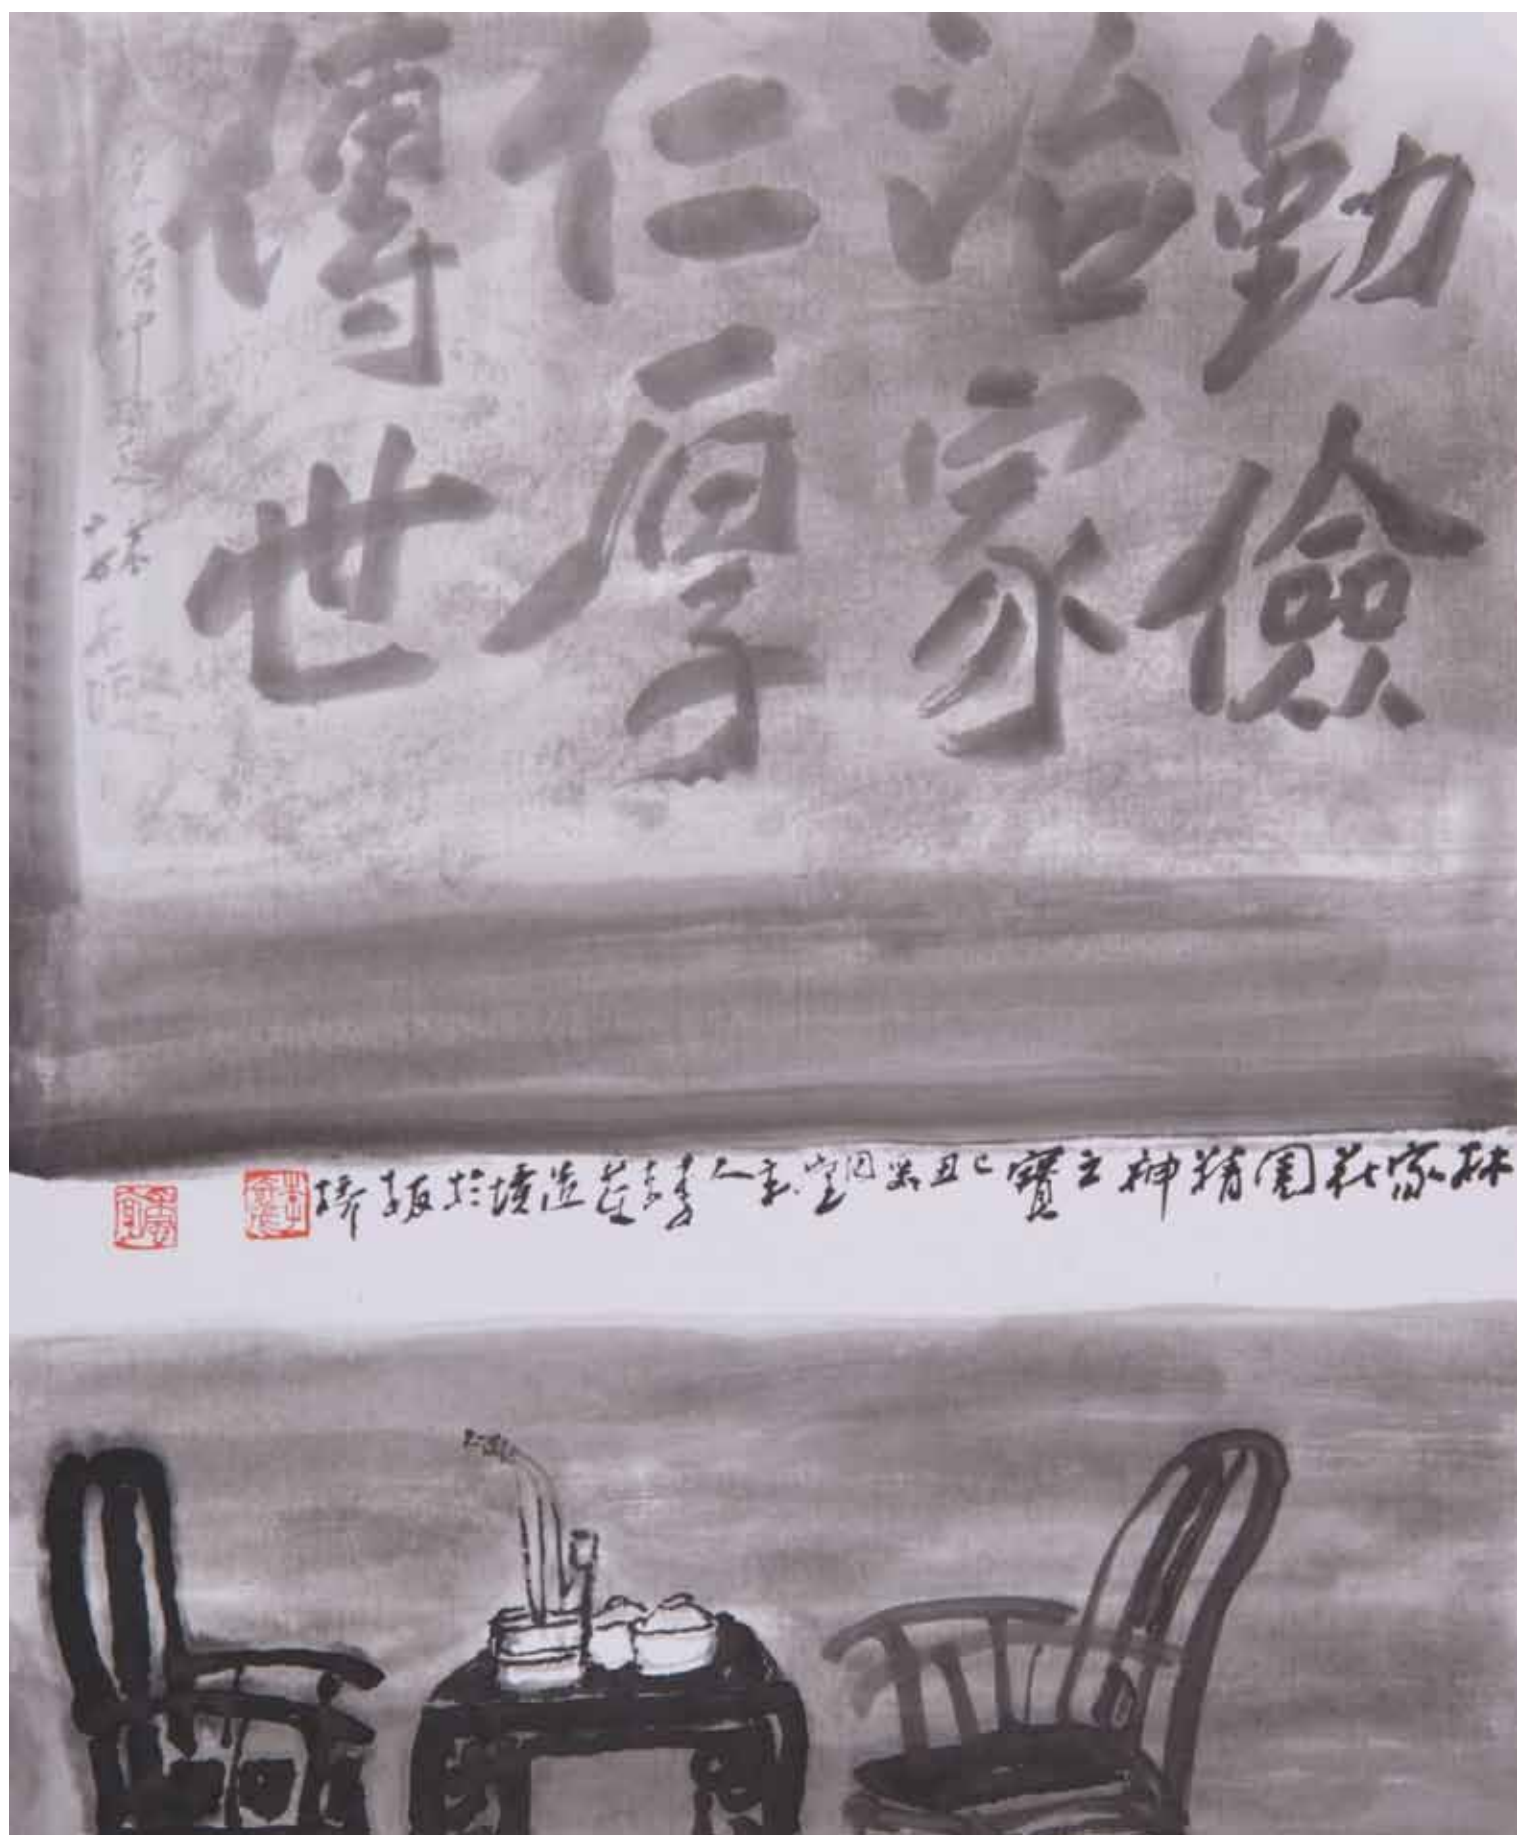 勤儉
治家
仁厚
傳世
林家花園精神之寶己丑堂主人李奇茂造境於板橋